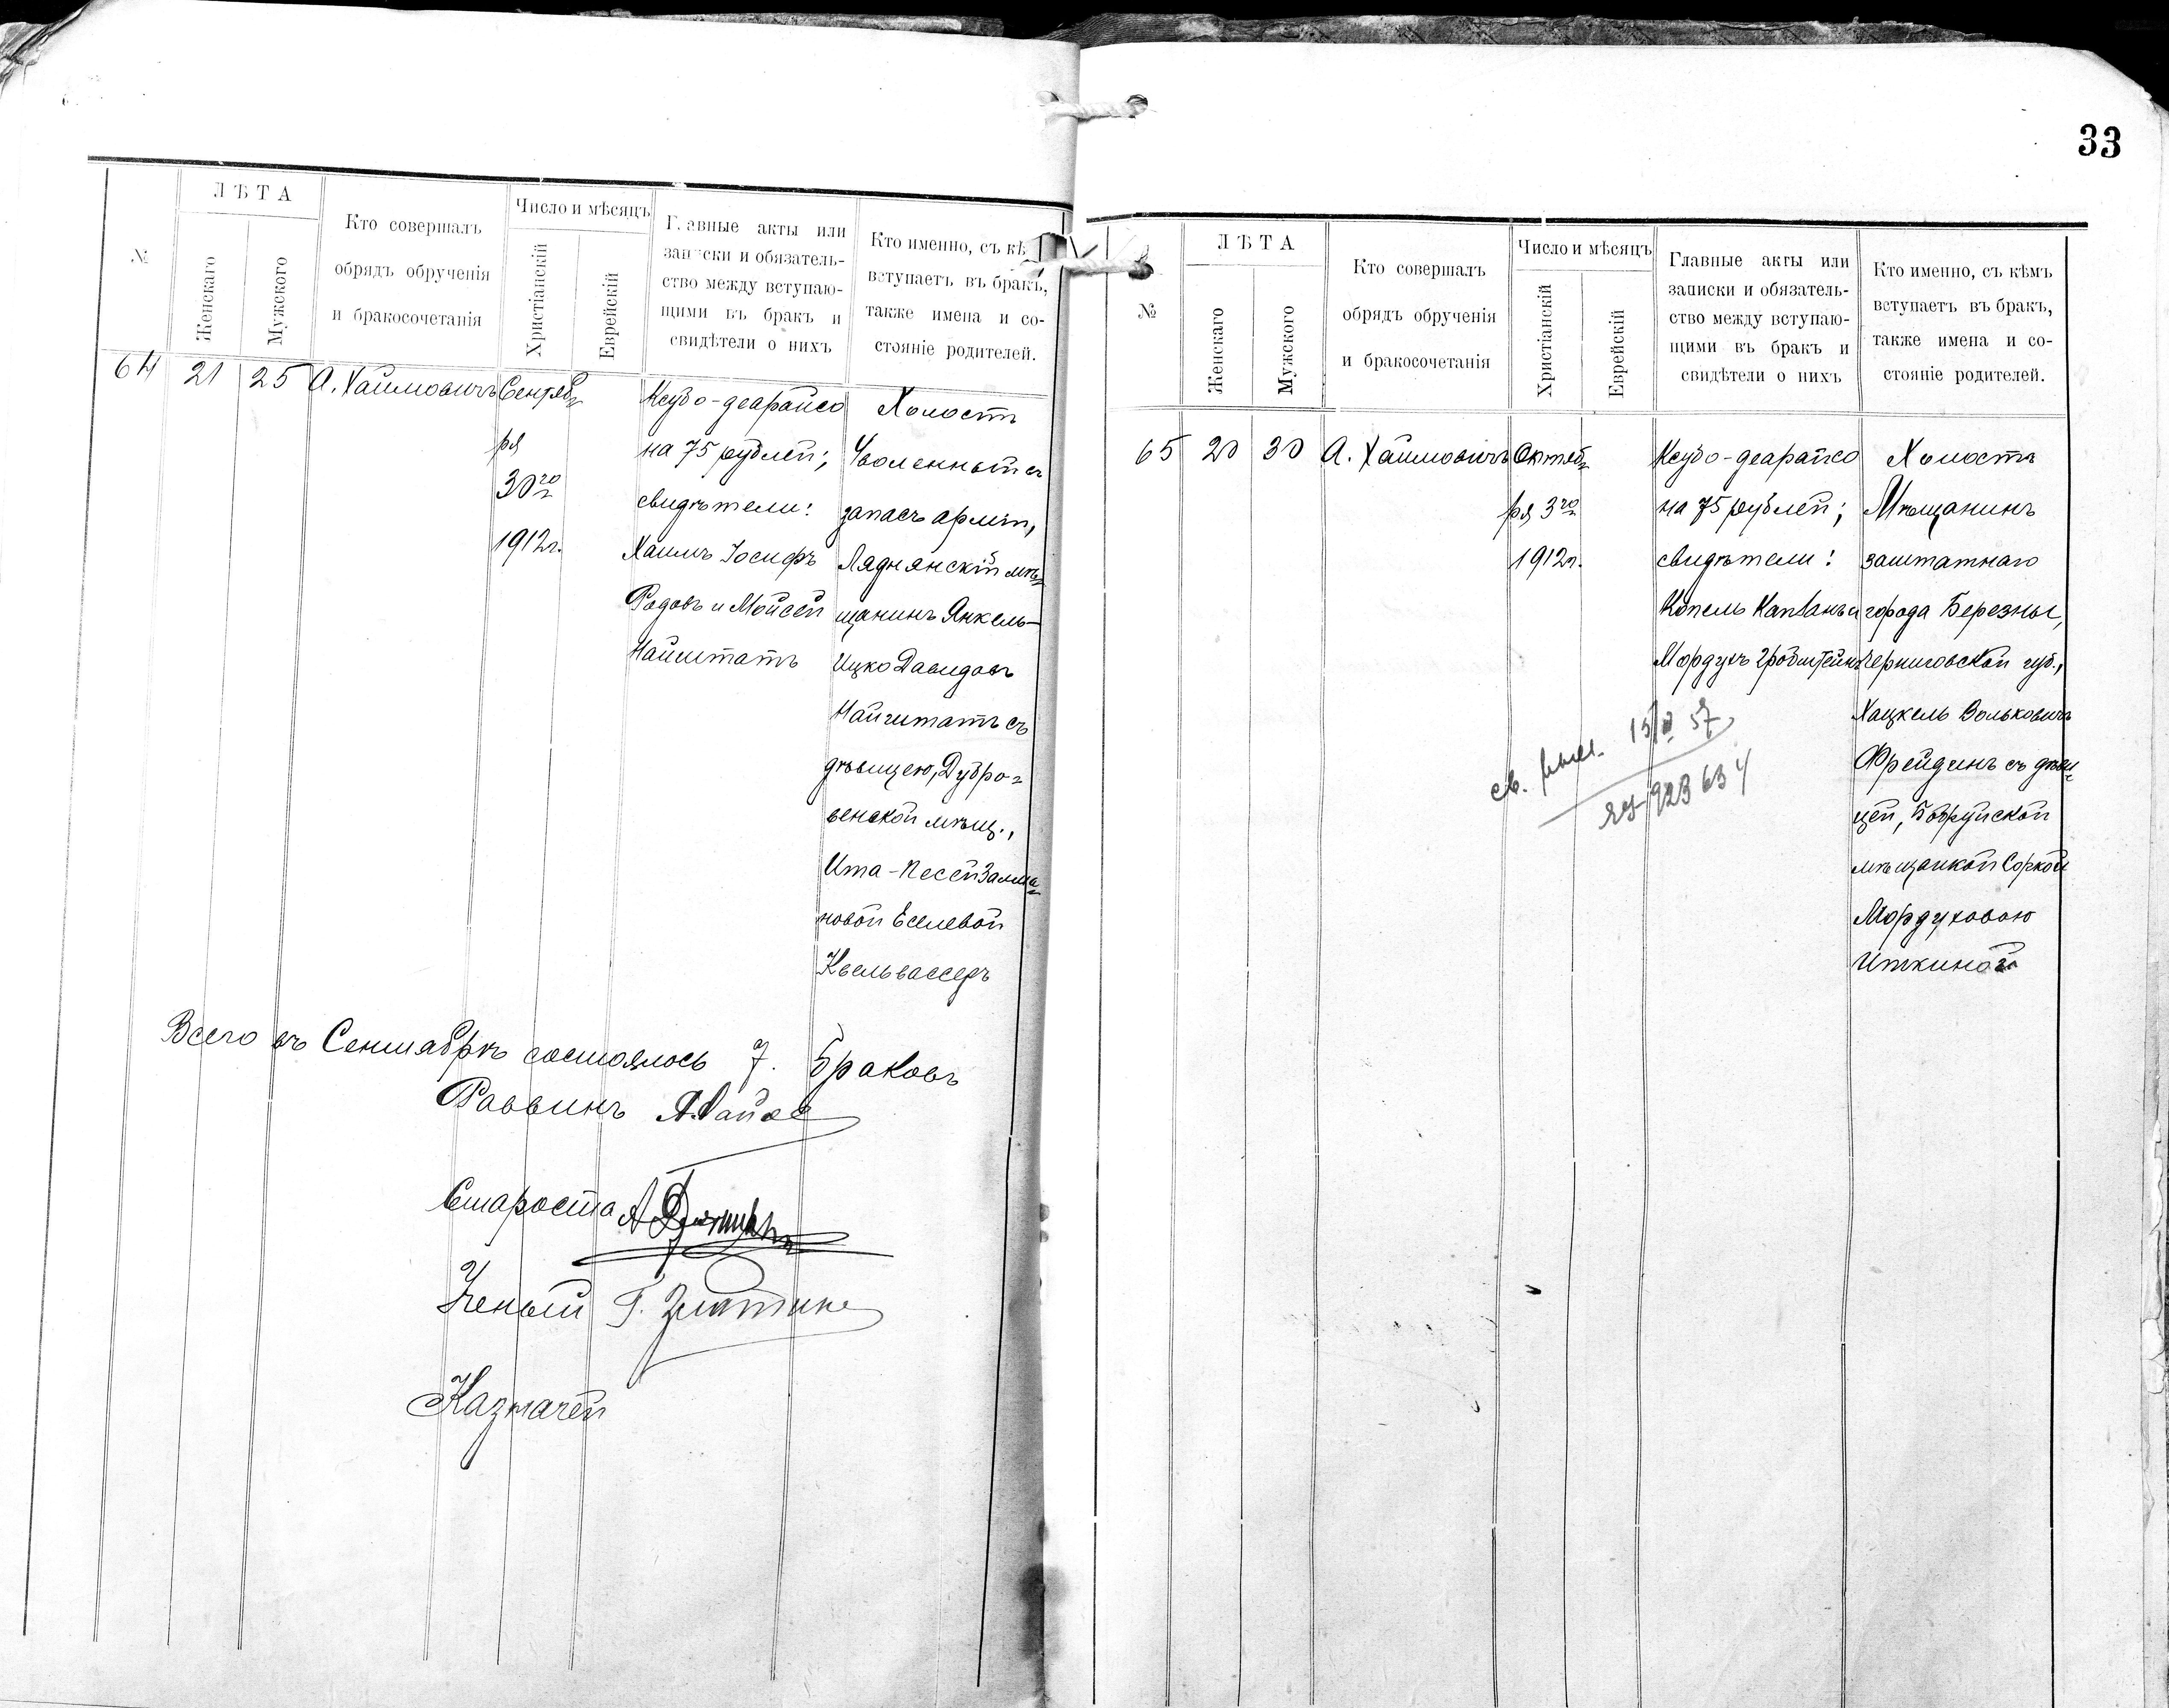 №
ЛѢТА
Женскаго
Мужского
Кто совершалъ
обрядъ обрученія
и бракосочетанія
Число и мѣсяцъ
Христіанскій
Еврейскій
Главные акты или
записки и обязатель-
ство между вступаю-
щими въ бракъ и
свидѣтели о нихъ
Кто именно, съ кѣ
вступаетъ въ бракъ,
также имена и со-
стояніе родителей.
64
21
25
А. Хаимовичъ
Сентяб=
ря
30го
1912г.
Ксубо-деарайсо
на 75 рублей;
свидѣтели:
Хаимъ Іосифъ
Радовъ и Мойсей
Найштатъ
Холостъ
Уволенный въ
запасъ арміи,
Ляднянскій мѣ=
щанинъ Янкель-
Ицко Давидовъ
Найштатъ съ
дѣвицею, Дубро=
венской мѣщ.,
Ита-Песей Залма=
новой Еселевой
Квельвассеръ
Всего въ Сентябрѣ состоялось 7. браковъ
Раввинъ
Староста
Ученый Г.
Казначей
33
№
ЛѢТА
Женскаго
Мужского
Кто совершалъ
обрядъ обрученія
и бракосочетанія
Число и мѣсяцъ
Христіанскій
Еврейскій
Главные акты или
записки и обязатель-
ство между вступаю-
щими въ бракъ и
свидѣтели о нихъ
Кто именно, съ кѣмъ
вступаетъ въ бракъ,
также имена и со-
стояніе родителей.
65
20
30
А. Хаимовичъ
Октяб=
ря 3го
1912г.
Ксубо-деарайсо
на 75 рублей;
свидѣтели:
Копель Капланъ и
Мордухъ Гробштейнъ
Холостъ
Мѣщанинъ
заштатнаго
города Березны,
Черниговской губ.,
Хацкель Вольковичъ
Фрейдинъ съ дѣви=
цей, Бобруйской
мѣщанкой Соркой
Мордуховою
Иткиной
св. 57
923634